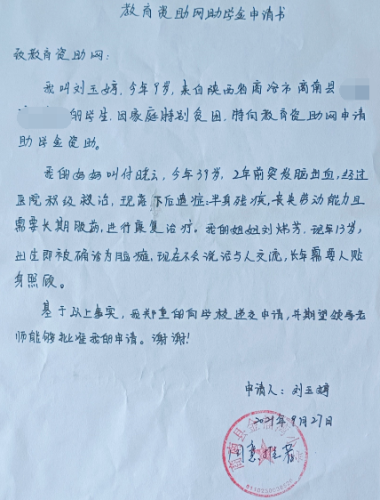 教育资助网助学金申请书
致教育资助网：
我叫刘玉婷，今年9岁，来自陕西省商洛市商南县
的学生，因家庭特别贫困，特向教育资助网申请
助学金资助。
我的妈妈叫付晓云，今年39岁，2年前突发脑出血，经过
医院积极救治，现落下后遗症：半身瘫痪，丧失劳动能力且
需要长期服药，进行康复治疗。我的姐姐刘炜芳，现年13岁，
出生即被确诊为脑瘫，现在不会说话与人交流，长年需要人贴
身照顾。
基于以上事实，我郑重的向学校递交申请，并期望领导老
师能够批准我的申请。谢谢！
申请人：刘玉婷
2021年9月27日
同意推荐